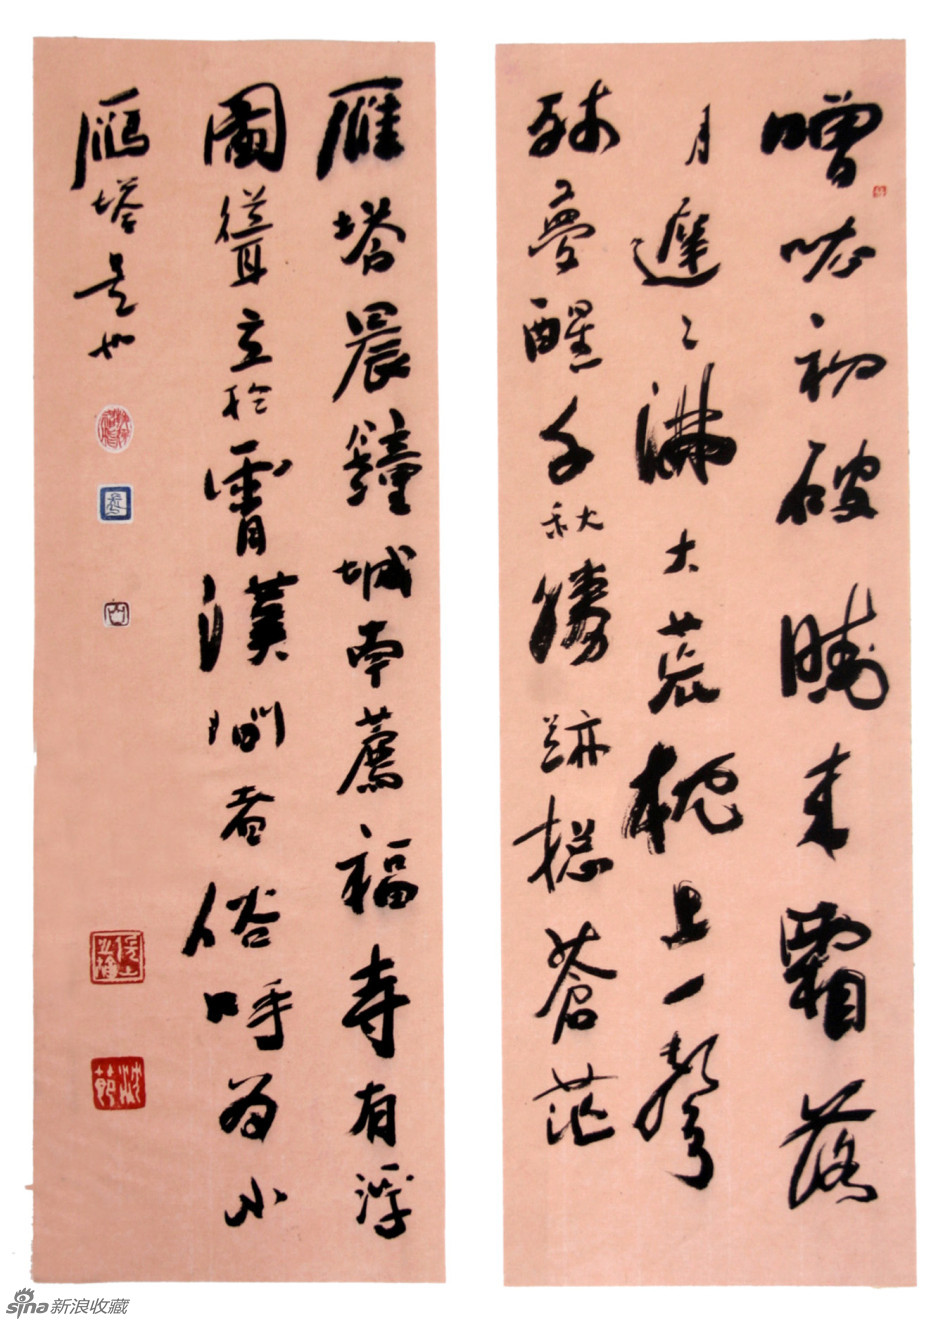 噌吰初破曉来霜落
月遲〻滿大荒枕上一聲
殘夢醒千秋勝跡揔蒼茫
雁塔晨鐘城南薦福寺有浮
圖聳立於霄漢間者俗呼為小
鴈塔是也
sina新浪收藏